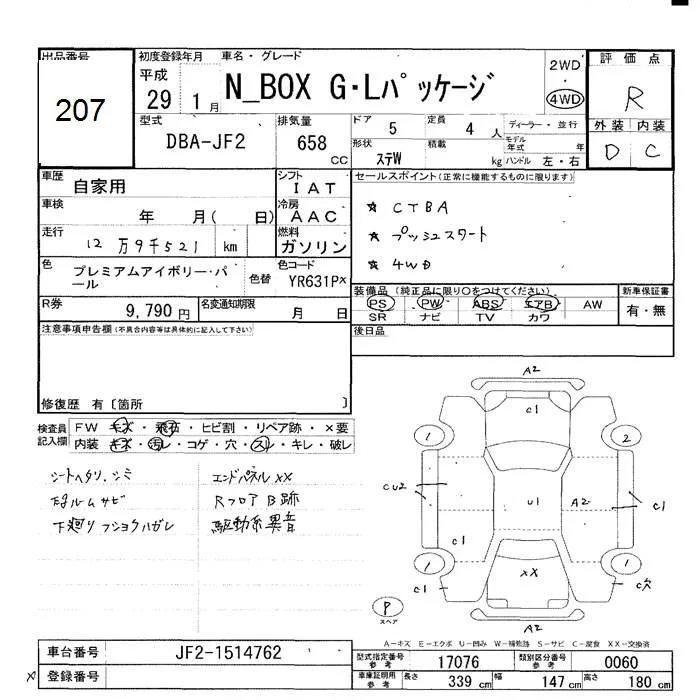 出品番号
207
初度登録年月
平成
29 1月
車名・グレード
N_BOX G・Lパッケージ
2WD
4WD
評価点
R
外装 内装
D C
型式
DBA-JF2
排気量
658
CC
ドア
5
定員
4 人
ディーラー・並行
モデル
年式 年
形状
ステW
積載
kg
ハンドル 左・右
車歴
自家用
シフト
IAT
車検
年 月( 日)
冷房
AAC
走行
12万9千521 km
燃料
ガソリン
色
プレミアムアイボリー・パ
ール
色替
色コード
YR631P×
R券
9,790 円
名変通知期限
月 日
セールスポイント(正常に機能するものに限ります)
☆ CTBA
☆ プッシュスタート
☆ 4WD
装備品(純正品に限り○をつけてください)
PS PW ABS エアB AW
SR ナビ TV カワ
新車保証書
有・無
注意事項申告欄(不具合内容等は具体的に記入して下さい)
後日品
修復歴 有〔箇所 〕
検査員
記入欄
FW キズ・飛石・ヒビ割・リペア跡・×要
内装 キズ・汚レ・コゲ・穴・スレ・キレ・破レ
シートヘタリ、シミ
ルームサビ
下廻りフショクハガレ
エンドパネル××
Rフロア B跡
駆動系異音
A2
C1
1
2
CU2
U1
A2
C1
C1
1
1
C1
XX
C穴
P
スペア
A2
A-キズ E-エクボ U-凹み W-補修跡 S-サビ C-腐食 XX-交換済
車台番号
JF2-1514762
登録番号
型式指定番号
参考
17076
類別区分番号
参考
0060
車庫証明用
参考
長さ 339 cm 幅 147 cm 高さ 180 cm